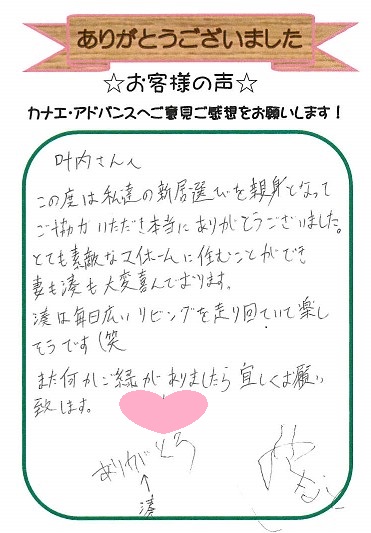 ありがとうございました
☆お客様の声☆
カナエ・アドバンスへご意見ご感想をお願いします!
叶内さんへ
この度は私達の新居選びを親身となって
ご協力いただき本当にありがとうございました。
とても素敵なマイホームに住むことができ
妻も湊も大変喜んでおります。
湊は毎日広いリビングを走り回っていて楽し
そうです(笑
また何かご縁がありましたら宜しくお願い
致します。
ありがとう
↑
湊